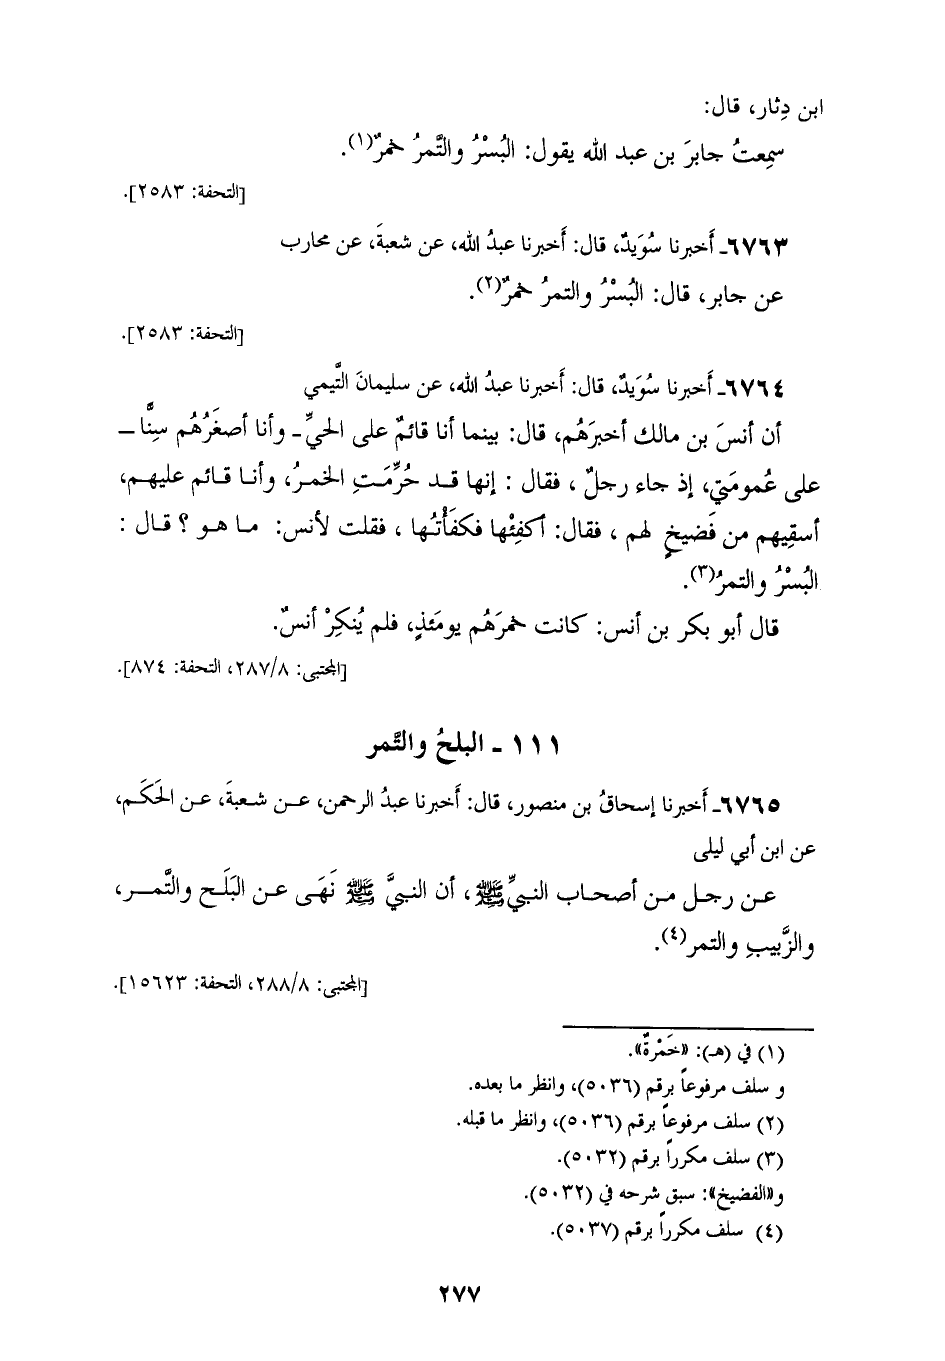 ابن دِثار، قال:
سمِعتُ جابرَ بن عبد الله يقول: البُسْرُ والتَّمرُ خمرٌ(١).
[التحفة: ٢٥٨٣].
٦٧٦٣ـ أَخبرنا سُوَيدٌ، قال: أَخبرنا عبدُ الله، عن شعبةَ، عن محارب
عن جابر، قال: البُسْرُ والتمرُ خمرٌ(٢).
[التحفة: ٢٥٨٣].
٦٧٦٤ـ أَخبرنا سُوَيدٌ، قال: أَخبرنا عبدُ الله، عن سليمانَ التَّيمي
أن أنسَ بن مالك أخبرَهُم، قال: بينما أنا قائمٌ على الحيِّ ـ وأنا أصغَرُهُم سِنًّا ـ
على عُمومَتي، إذ جاء رجلٌ، فقال: إنها قد حُرِّمَتِ الخمرُ، وأنا قائم عليهم،
أسقِيهم من فَضيخٍ لهم، فقال: أكفِئْها فكفَأْتُها، فقلت لأنس: ما هو؟ قال:
البُسْرُ والتمرُ(٣).
قال أبو بكر بن أنس: كانت خمرَهُم يومَئذٍ، فلم يُنكِرْ أنسٌ.
[المجتبى: ٢٨٧/٨، التحفة: ٨٧٤].
١١١ ـ البلحُ والتَّمر
٦٧٦٥ـ أَخبرنا إسحاقُ بن منصور، قال: أَخبرنا عبدُ الرحمن، عن شعبةَ، عن الحَكَم،
عن ابن أبي ليلى
عن رجل من أصحاب النبيِّ ﷺ، أن النبيَّ ﷺ نَهَى عن البَلَح والتَّمر،
والزَّبيبِ والتمر(٤).
[المجتبى: ٢٨٨/٨، التحفة: ١٥٦٢٣].
(١) في (هـ): «خَمْرةٌ».
و سلف مرفوعاً برقم (٥٠٣٦)، وانظر ما بعده.
(٢) سلف مرفوعاً برقم (٥٠٣٦)، وانظر ما قبله.
(٣) سلف مكرراً برقم (٥٠٣٢).
و«الفضيخ»: سبق شرحه في (٥٠٣٢).
(٤) سلف مكرراً برقم (٥٠٣٧).
٢٧٧